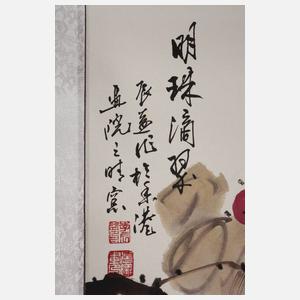 明珠滴翠
辰逊作於香港
画院之晴窗